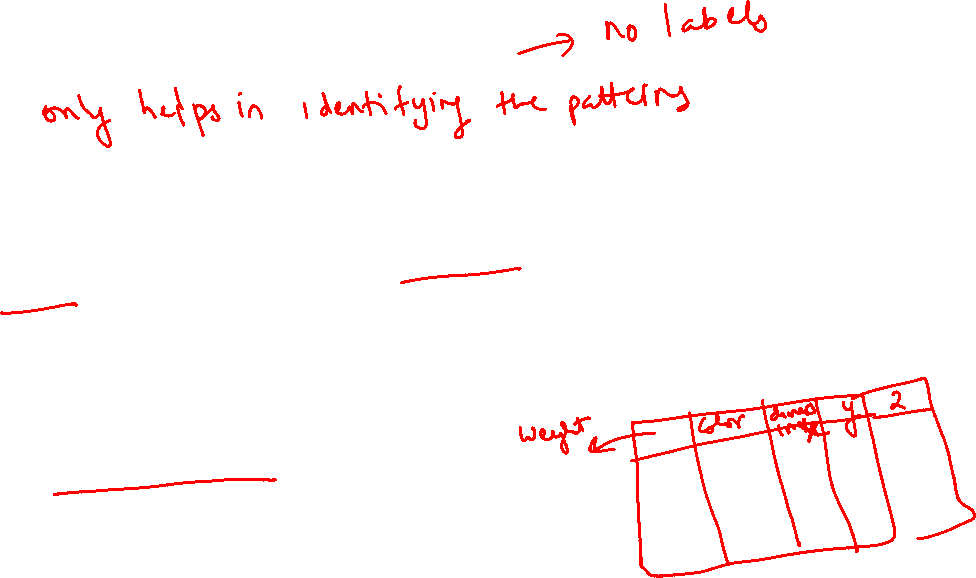 → no labels
only helps in identifying the patterns
weight
color
y
2